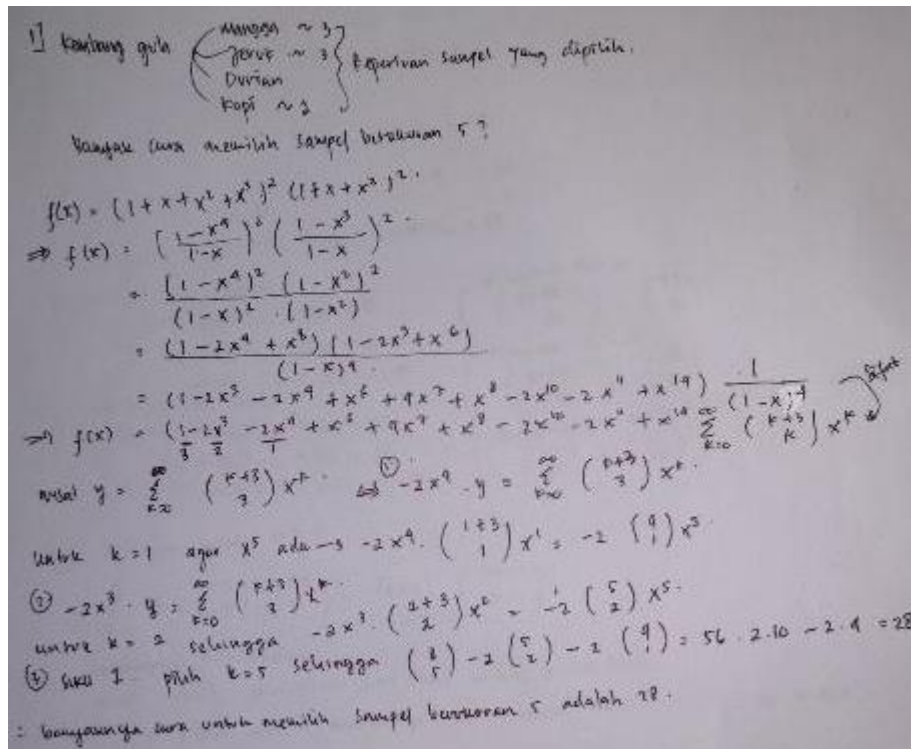 1] kembang gula
mangga ~ 3
Jeruk ~ 3
Durian
kopi ~ 2
keperluan sampel yang dipilih.
Banyak cara memilih sampel berukuran 5?
f(x) = (1 + x + x² + x³)² (1 + x + x²)².
⇒ f(x) = [(1-x⁴)/(1-x)]² ((1-x³)/(1-x))².
= (1-x⁴)² (1-x³)² / (1-x)² . (1-x²)
= (1-2x⁴ + x⁸)(1-2x³+x⁶) / (1-x)⁴.
= (1-2x³ - 2x⁴ + x⁶ + 4x⁷ + x⁸ - 2x¹⁰ - 2x¹¹ + x¹⁴) 1/(1-x)⁴
⇒ f(x) = (1-2x³ - 2x⁴ + x⁶ + 4x⁷ + x⁸ - 2x¹⁰ - 2x¹¹ + x¹⁴ ∞Σk=0 (k+3 k) xᵏ
3 2 1
misal y = ∞Σk=0 (k+3 3) xᵏ. ⇔ ① -2x⁴ . y = ∞Σk=0 (k+3 3) xᵏ.
untuk k=1 agar x⁵ ada → -2x⁴. (1+3 1) x¹ = -2 (4 1) x⁵.
② -2x³ . y = ∞Σk=0 (k+3 3) xᵏ.
untuk k = 2 sehingga -2x³. (2+3 2) x² = -2 (5 2) x⁵.
③ suku 1 pilih k=5 sehingga (8 5) - 2 (5 2) - 2 (4 1) = 56 . 2.10 - 2.4 = 28
∴ banyaknya cara untuk memilih sampel berukuran 5 adalah 28.